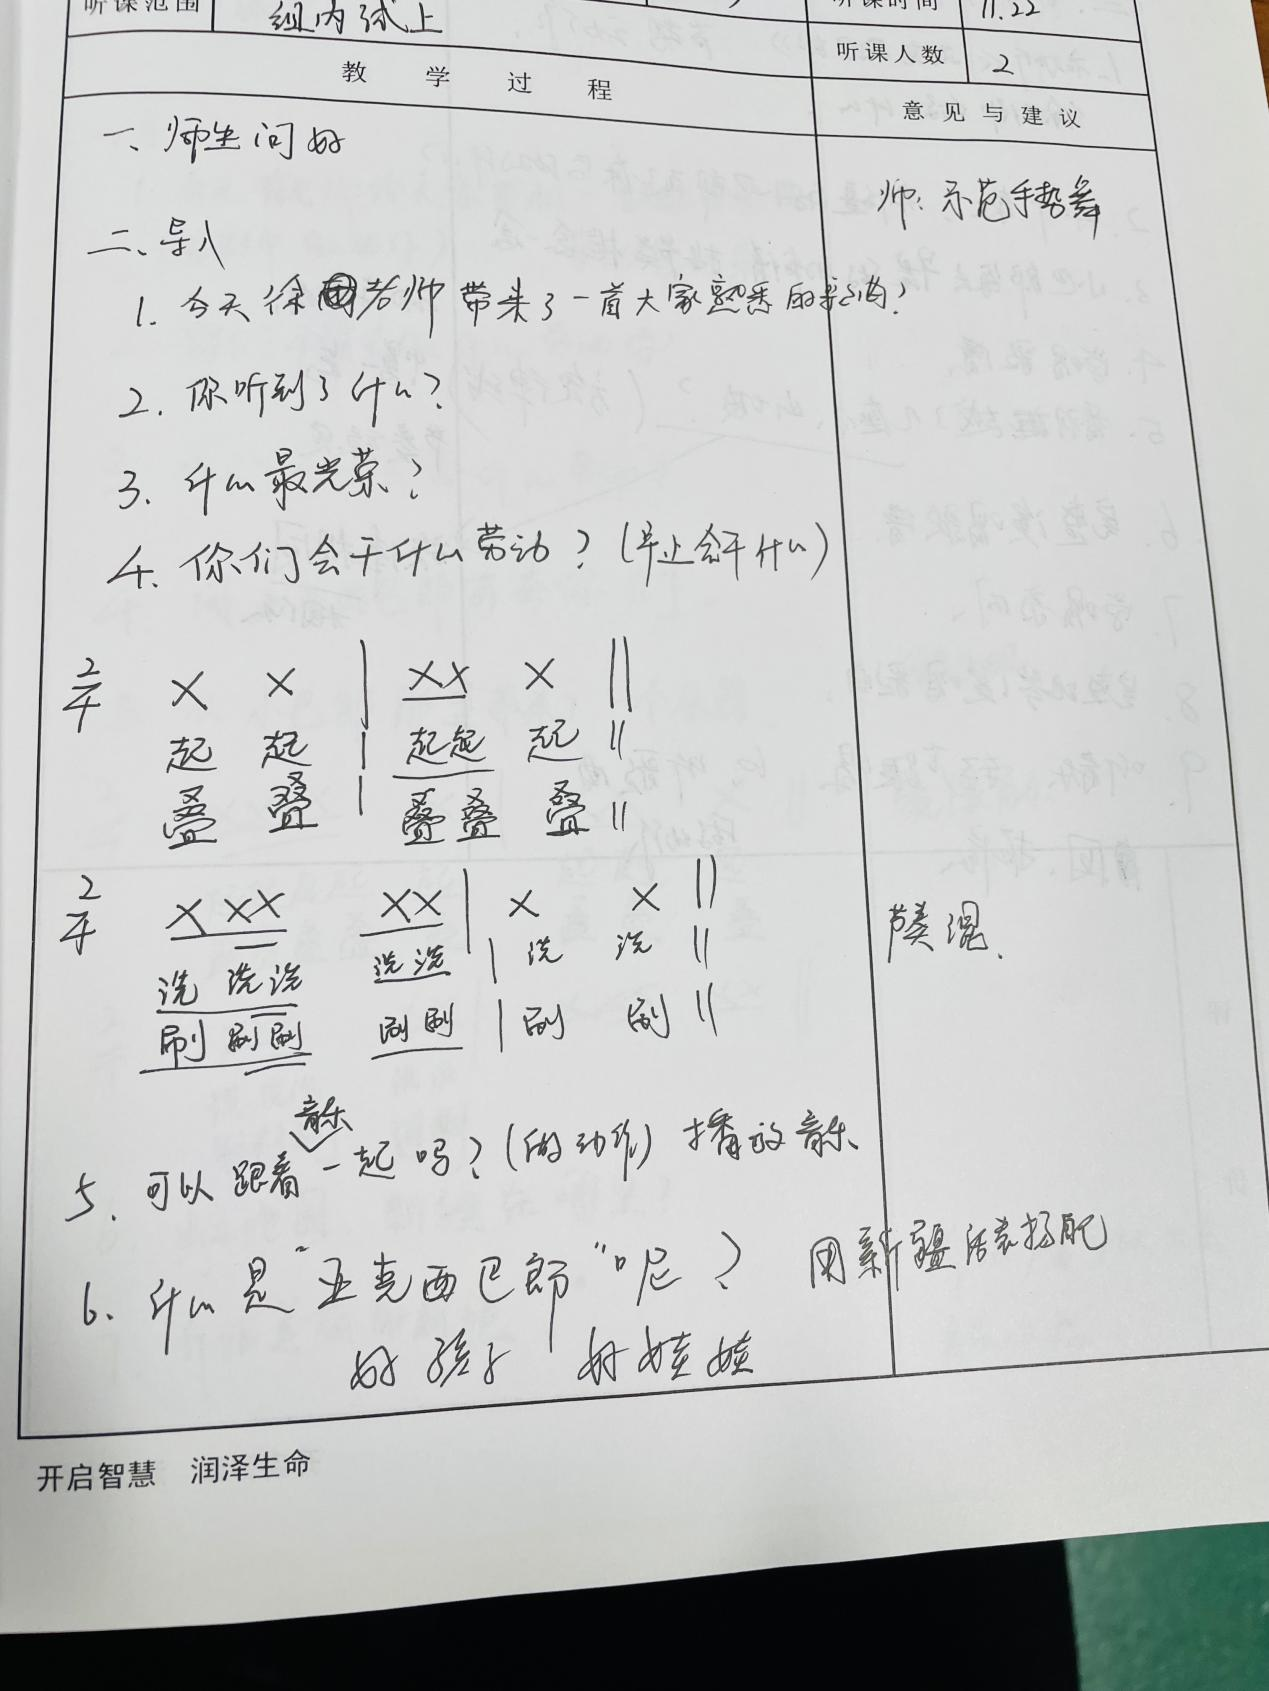 听课范围 组内试上 听课时间 11.22
听课人数 2
教学过程 意见与建议
一、师生问好
师：示范手势舞
二、导入
1. 今天徐老师带来了一首大家熟悉的
2. 你听到了什么？
3. 什么最光荣？
4. 你们会干什么劳动？(早上会干什么)
2/4 X X | XX X ||
起 起 | 起起 起 ||
叠 叠 | 叠叠 叠 ||
2/4 X XX XX | X X ||
节奏混.
洗 洗洗 洗洗 | 洗 洗 ||
刷 刷刷 刷刷 | 刷 刷 ||
音乐
5. 可以跟着一起吗？(做动作) 播放音乐
6. 什么是"亚克西巴郎"呢？ 用新疆话表扬
好孩子 好娃娃
开启智慧 润泽生命